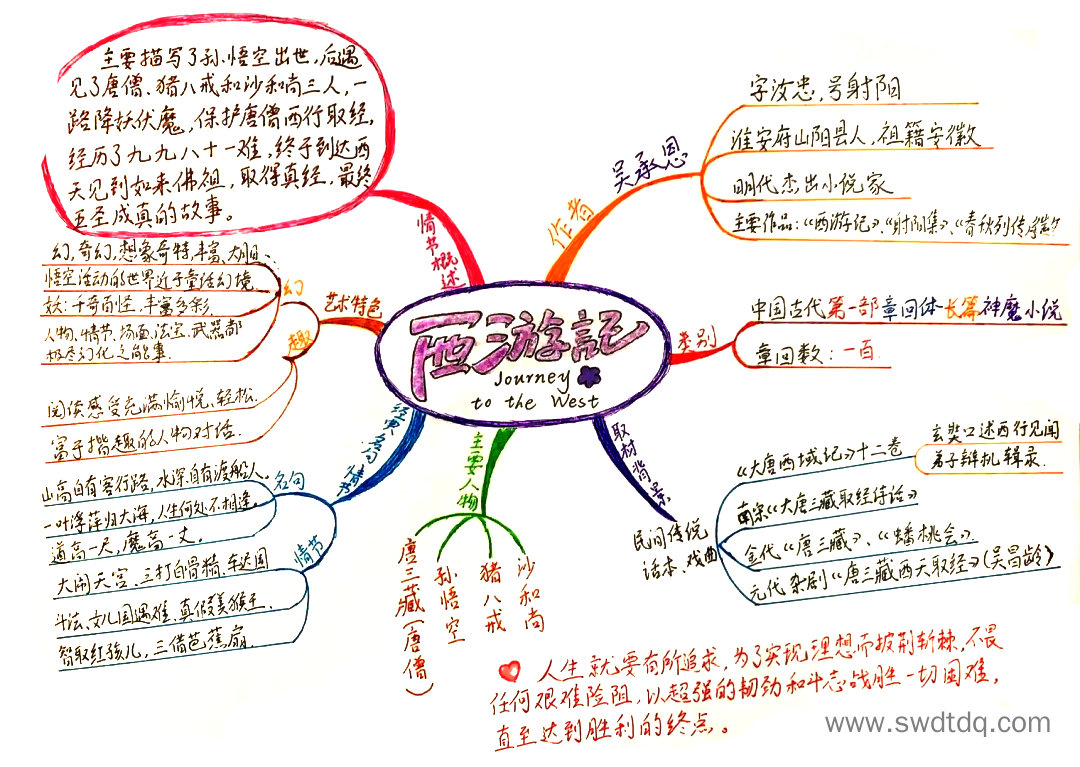 主要描写了孙悟空出世，后遇
见了唐僧、猪八戒和沙和尚三人，一
路降妖伏魔，保护唐僧西行取经，
经历了九九八十一难，终于到达西
天见到如来佛祖，取得真经，最终
五圣成真的故事。
情节概述
西游記
Journey
to the West
作者
吴承恩
字汝忠，号射阳
淮安府山阳县人，祖籍安徽
明代杰出小说家
主要作品：《西游记》、《射阳集》、《春秋列传序》
类别
中国古代第一部章回体长篇神魔小说
章回数：一百
取材背景
《大唐西域记》十二卷
玄奘口述西行见闻
弟子辩机辑录.
民间传说
话本、戏曲
南宋《大唐三藏取经诗话》
金代《唐三藏》、《蟠桃会》.
元代杂剧《唐三藏西天取经》(吴昌龄)
主要人物
唐三藏(唐僧)
孙悟空
猪八戒
沙和尚
经典名句情节
名句
山高自有客行路，水深自有渡船人。
一叶浮萍归大海，人生何处不相逢。
道高一尺，魔高一丈。
情节
大闹天宫、三打白骨精、车迟国
斗法、女儿国遇难、真假美猴王、
智取红孩儿，三借芭蕉扇.
艺术特色
幻
幻，奇幻，想象奇特，丰富、大胆.
悟空活动的世界近于童话幻境
妖：千奇百怪，丰富多彩.
人物、情节、场面，法宝、武器都
极尽幻化之能事.
趣
阅读感受充满愉悦、轻松.
富于揩趣的人物对话.
人生就要有所追求，为了实现理想而披荆斩棘，不畏
任何艰难险阻，以超强的韧劲和斗志战胜一切困难，
直至达到胜利的终点。
www.swdtdq.com